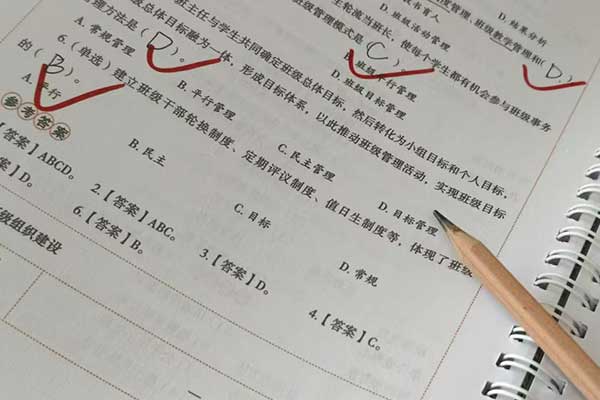 书育人
D. 结果分析
D. 班级活动管理
度管理、班级教学管理和( D )
主轮流当班长，使每个学生都有机会参与班级事务
级管理模式是( C )。
B. 班级平行管理
D. 班级目标管理
班主任与学生共同确定班级总体目标，然后转化为小组目标和个人目标，
级总体目标融为一体，形成目标体系，以此推动班级管理活动，实现班级目标
理方法是( D )。
A. 常规管理
B. 平行管理
C. 民主管理
D. 目标管理
6. (单选) 建立班级干部轮换制度、定期评议制度、值日生制度等，体现了班级
的( B )。
A. 平行
B. 民主
C. 目标
D. 常规
参考答案
【答案】ABCD。
2.【答案】ABC。
3.【答案】D。
4.【答案】C。
【答案】D。
6.【答案】B。
级组织建设